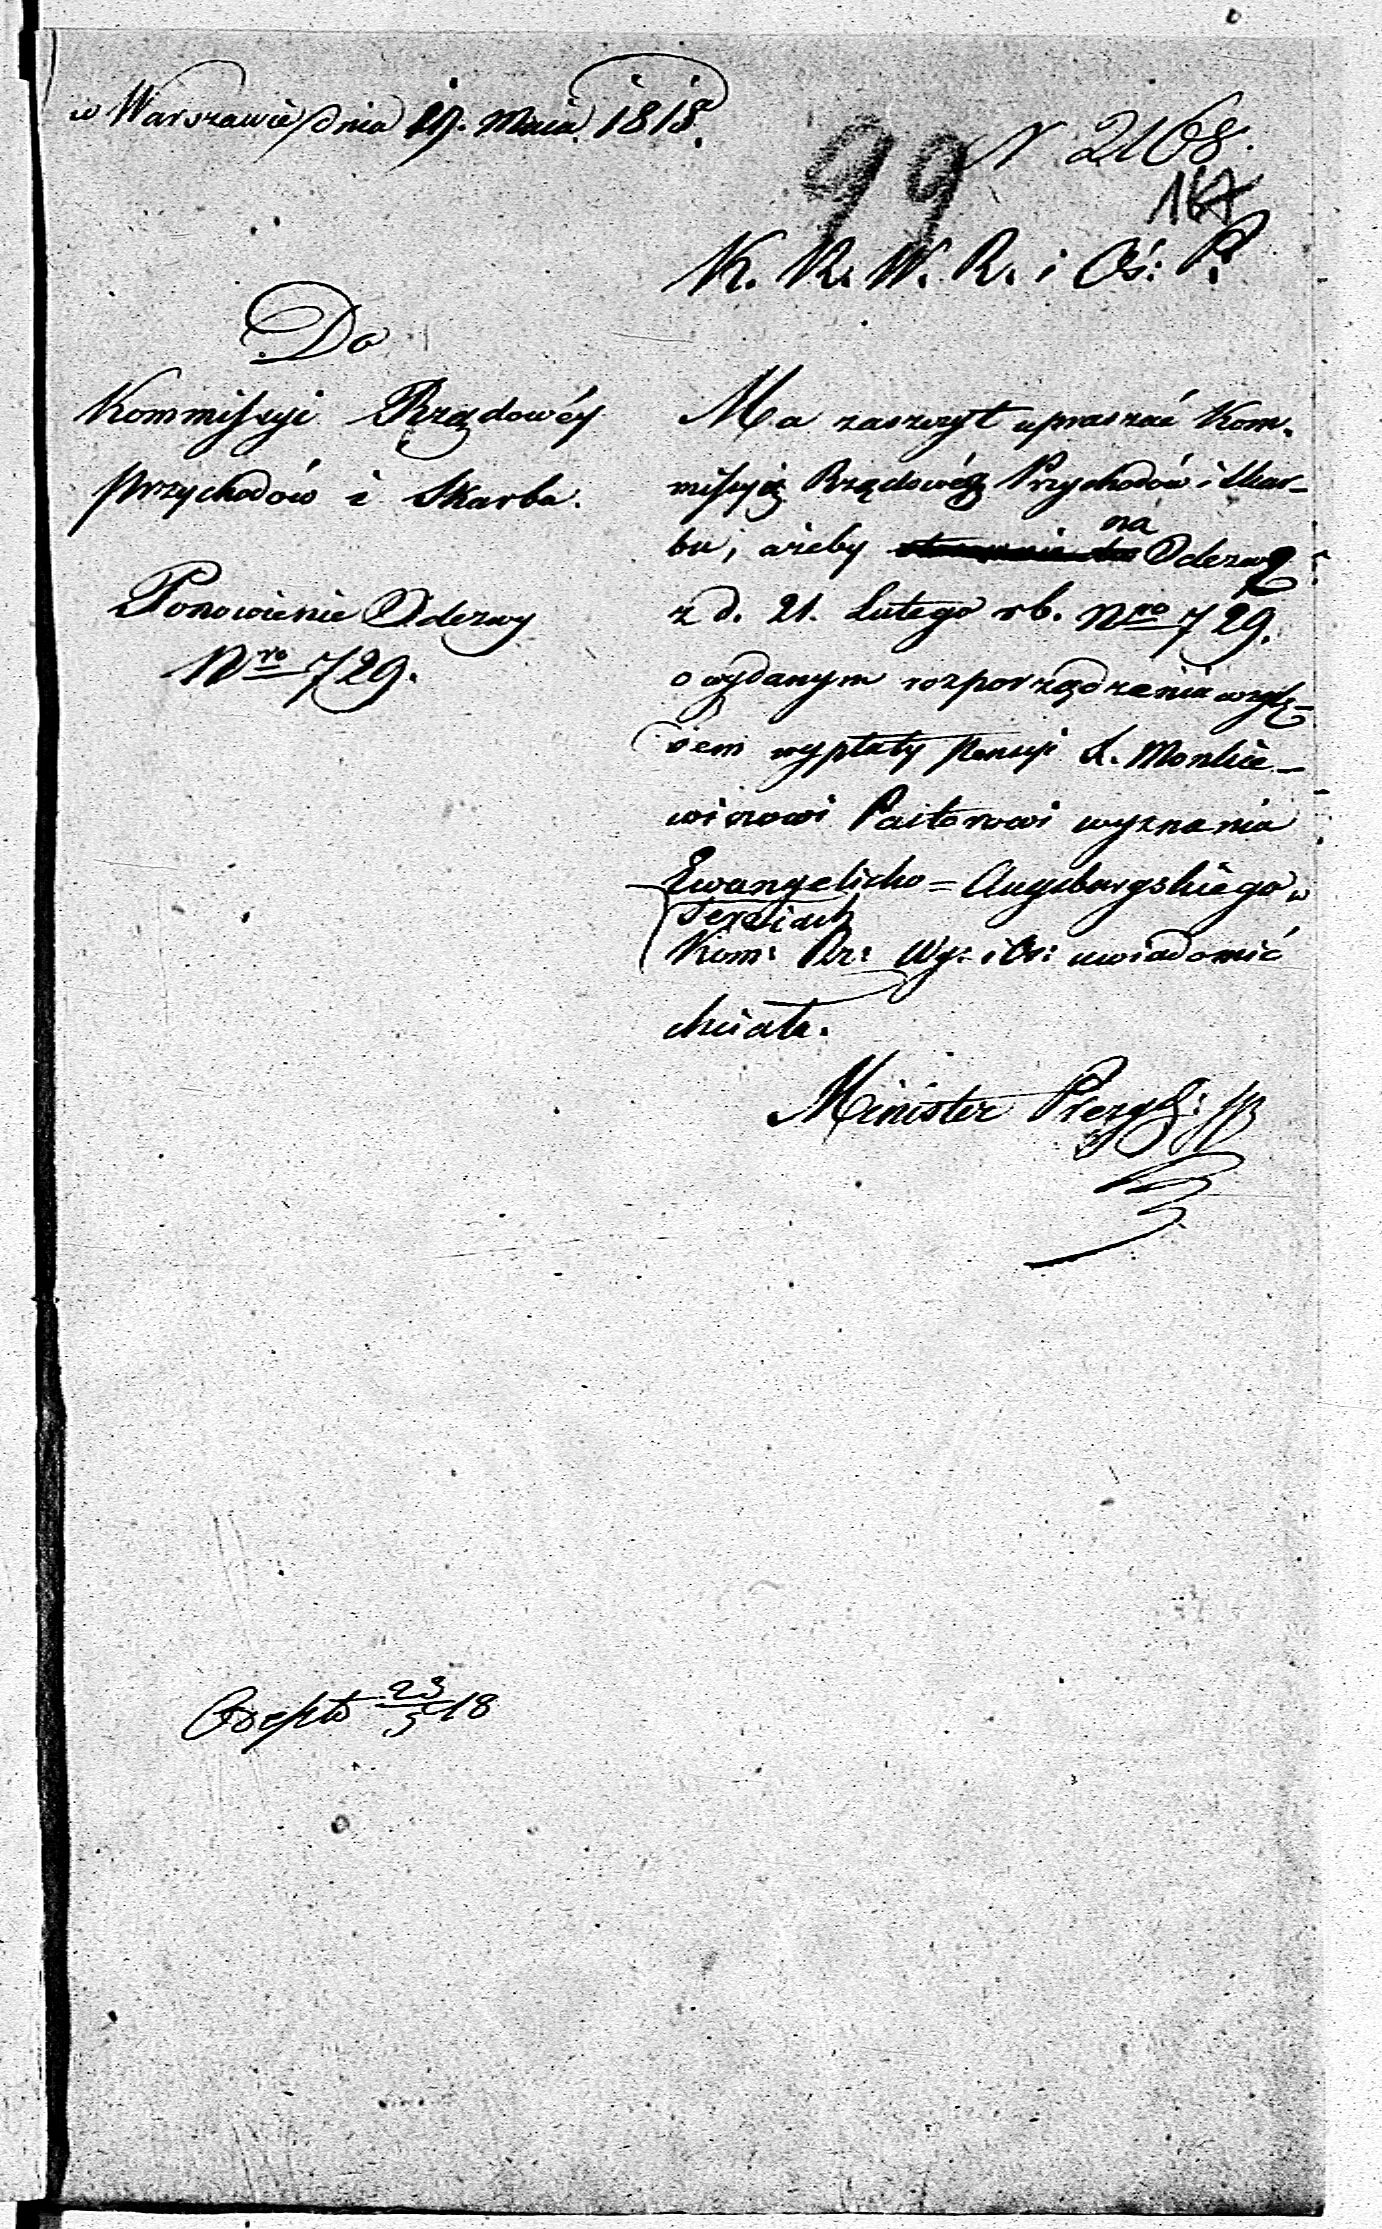 w Warszawie dnia 19. Maia 1818.
N 2168.
99
167
K. R. W. R. i Oś: P.
Do
Kommissyi Rządowéy
Przychodów i Skarbu.
Ponowienie Odezwy
Nro 729.
Ma zaszczyt upraszać Kom-
missyią Rządową Przychodów i Skar-
bu, ażeby na Odezwę
z d. 21. Lutego rb. Nro 729.
o wydanym rozporządzeniu wzglę-
dem wypłaty Pensyi X. Monkie-
wiczowi Pastorowi wyznania
Ewangelicko=Augsburgskiego w
Sereiach
Kom: Rz: Wy: i Oś: uwiadomić
chciała.
Minister Prezyd:
23/5 18